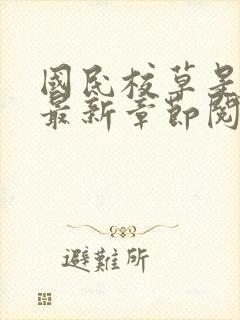 國民校草是
最新章節閱
避難所